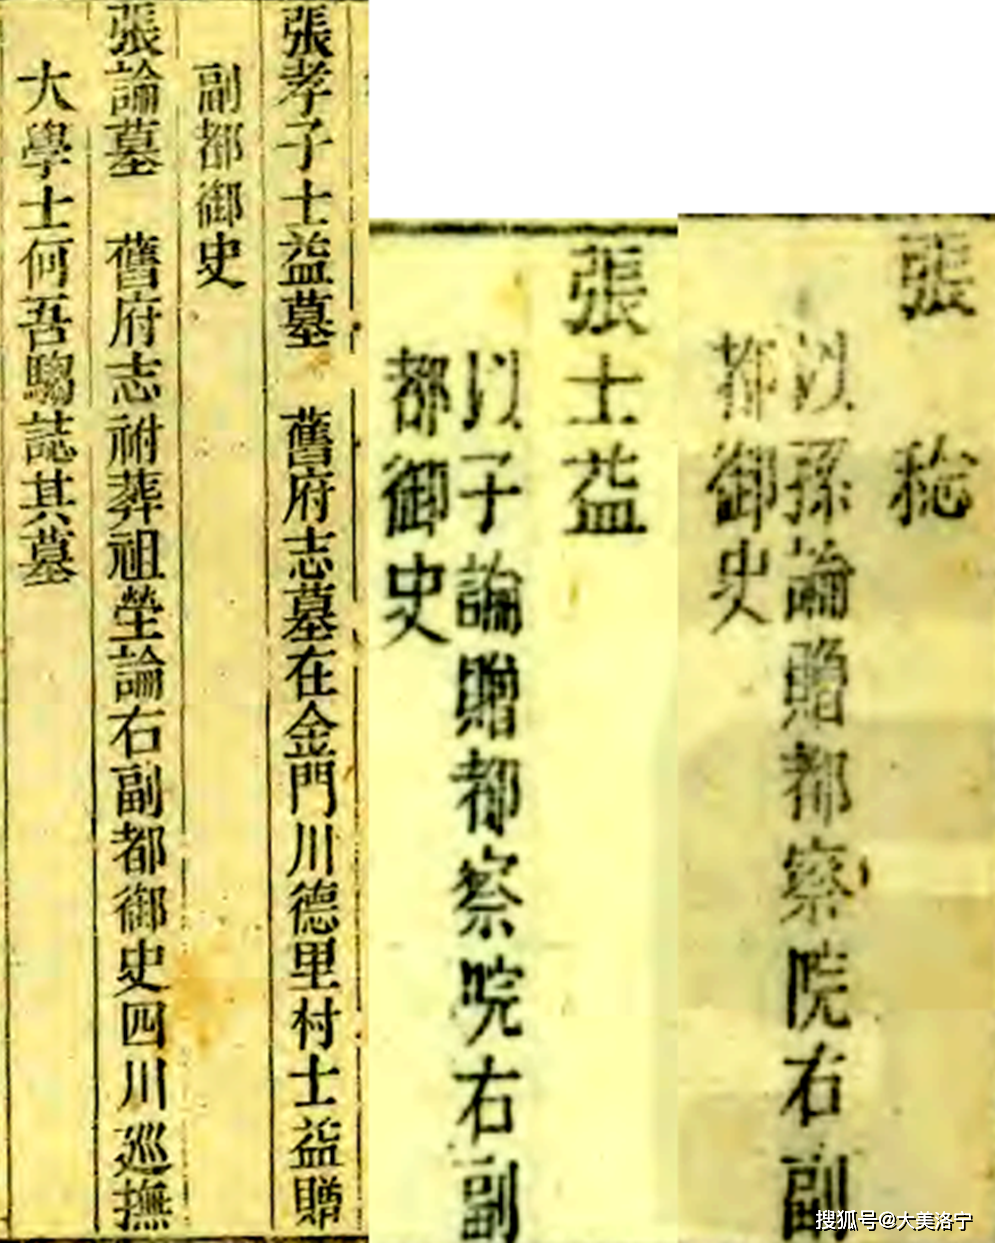 張孝子士益墓 舊府志墓在金門川德里村士益贈
副都御史
張論墓 舊府志祔葬祖塋論右副都御史四川巡撫
大學士何吾騶誌其墓
張士益
以子論贈都察院右副
都御史
張 稔
以孫論贈都察院右副
都御史
搜狐号@大美洛宁